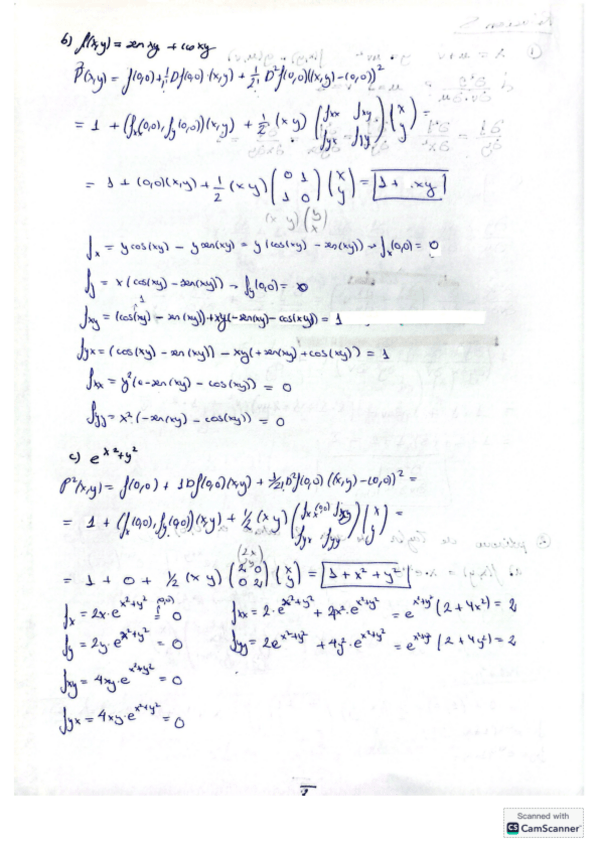 b) f(x,y) = sen xy + cos xy
P²(x,y) = f(0,0) + 1/1! Df(0,0)·(x,y) + 1/2! D²f(0,0)((x,y)-(0,0))²
= 1 + (fx(0,0), fy(0,0))(x,y) + 1/2 (x y) (fxx fxy fyx fyy) (x y) =
= 1 + (0,0)(x,y) + 1/2 (x y) (0 1 1 0) (x y) = 1 + xy
(x y) (y x)
fx = y cos(xy) - y sen(xy) = y (cos(xy) - sen(xy)) → fx(0,0) = 0
fy = x (cos(xy) - sen(xy)) → fy(0,0) = 0
fxy = (cos(xy) - sen(xy)) + xy(-sen(xy) - cos(xy)) = 1
fyx = (cos(xy) - sen(xy)) - xy(+sen(xy) + cos(xy)) = 1
fxx = y² (-sen(xy) - cos(xy)) = 0
fyy = x² (-sen(xy) - cos(xy)) = 0
c) e^x²+y²
P²(x,y) = f(0,0) + 1Df(0,0)(x,y) + 1/2! D²f(0,0) ((x,y)-(0,0))² =
= 1 + (fx(0,0), fy(0,0))(x,y) + 1/2 (x y) (fxx(0,0) fxy fyx fyy) (x y) =
= 1 + 0 + 1/2 (x y) (2 0 0 2) (x y) = 1 + x² + y²
fx = 2x·e^x²+y² (0,0) = 0 fxx = 2·e^x²+y² + 2x²·e^x²+y² = e^x²+y² (2+4x²) = 2
fy = 2y·e^x²+y² = 0 fyy = 2e^x²+y² + 4y²·e^x²+y² = e^x²+y² (2+4y²) = 2
fxy = 4xy·e^x²+y² = 0
fyx = 4xy·e^x²+y² = 0
Scanned with
CS CamScanner